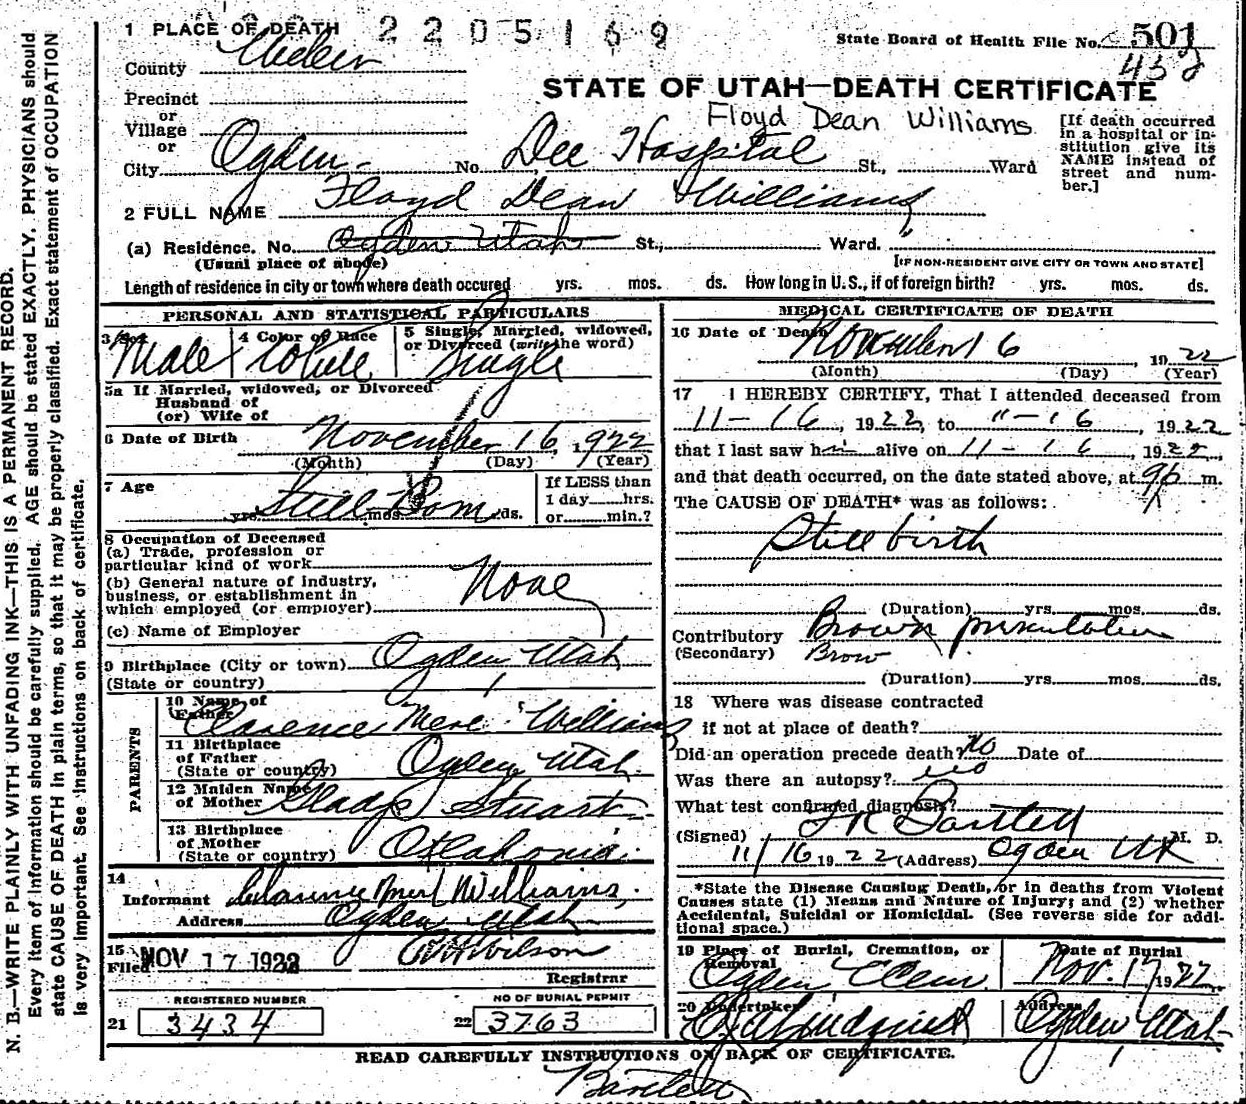 N. B.—WRITE PLAINLY WITH UNFADING INK—THIS IS A PERMANENT RECORD.
Every item of information should be carefully supplied. AGE should be stated EXACTLY. PHYSICIANS should
state CAUSE OF DEATH in plain terms, so that it may be properly classified. Exact statement of OCCUPATION
is very important. See instructions on back of certificate.
1 PLACE OF DEATH 2205169
State Board of Health File No. 501
432
County Weber
STATE OF UTAH—DEATH CERTIFICATE
Precinct
or
Village
or
Floyd Dean Williams
[If death occurred in a hospital or institution give its NAME instead of street and number.]
City Ogden No. Dee Hospital St., Ward
2 FULL NAME Floyd Dean Williams
(a) Residence. No. Ogden Utah St., Ward.
(Usual place of abode) [IF NON-RESIDENT GIVE CITY OR TOWN AND STATE]
Length of residence in city or town where death occured yrs. mos. ds. How long in U. S., if of foreign birth? yrs. mos. ds.
PERSONAL AND STATISTICAL PARTICULARS
3 Sex Male
4 Color or Race White
5 Single, Married, widowed, or Divorced (write the word) Single
5a If Married, widowed, or Divorced
Husband of
(or) Wife of
6 Date of Birth November 16, 1922
(Month) (Day) (Year)
7 Age Still Born
yrs. mos. ds.
If LESS than
1 day hrs.
or min.?
8 Occupation of Deceased
(a) Trade, profession or
particular kind of work
(b) General nature of industry,
business, or establishment in
which employed (or employer) None
(c) Name of Employer
9 Birthplace (City or town) Ogden Utah
(State or country)
PARENTS
10 Name of Father Clarence Merl Williams
11 Birthplace
of Father
(State or country) Ogden Utah
12 Maiden Name
of Mother Gladys Stuart
13 Birthplace
of Mother
(State or country) Oklahoma
14
Informant Merl Williams
Address Ogden Utah
15 Filed NOV 17 1922 Wilson
Registrar
REGISTERED NUMBER NO OF BURIAL PERMIT
21 3434 22 3763
MEDICAL CERTIFICATE OF DEATH
16 Date of Death November 16, 1922
(Month) (Day) (Year)
17 I HEREBY CERTIFY, That I attended deceased from
11-16, 1922, to 11-16, 1922
that I last saw him alive on 11-16, 1922,
and that death occurred, on the date stated above, at m.
The CAUSE OF DEATH* was as follows:
Still birth
(Duration) yrs. mos. ds.
Contributory Brow presentation
(Secondary) Brow
(Duration) yrs. mos. ds.
18 Where was disease contracted
if not at place of death?
Did an operation precede death? No Date of
Was there an autopsy? No
What test confirmed diagnosis?
(Signed) Bartlett M. D.
11/16 1922 (Address) Ogden Ut
*State the Disease Causing Death, or in deaths from Violent
Causes state (1) Means and Nature of Injury; and (2) whether
Accidental, Suicidal or Homicidal. (See reverse side for addi-
tional space.)
19 Place of Burial, Cremation, or Removal Date of Burial
Ogden, Cem. Nov. 17 1922
20 Undertaker Lindquist Address Ogden Utah
READ CAREFULLY INSTRUCTIONS ON BACK OF CERTIFICATE.
Bartlett